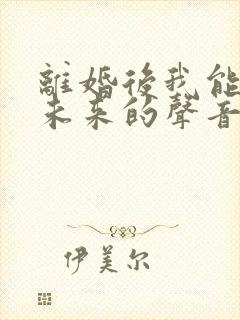 離婚後我能
未来的聲音
伊美尔